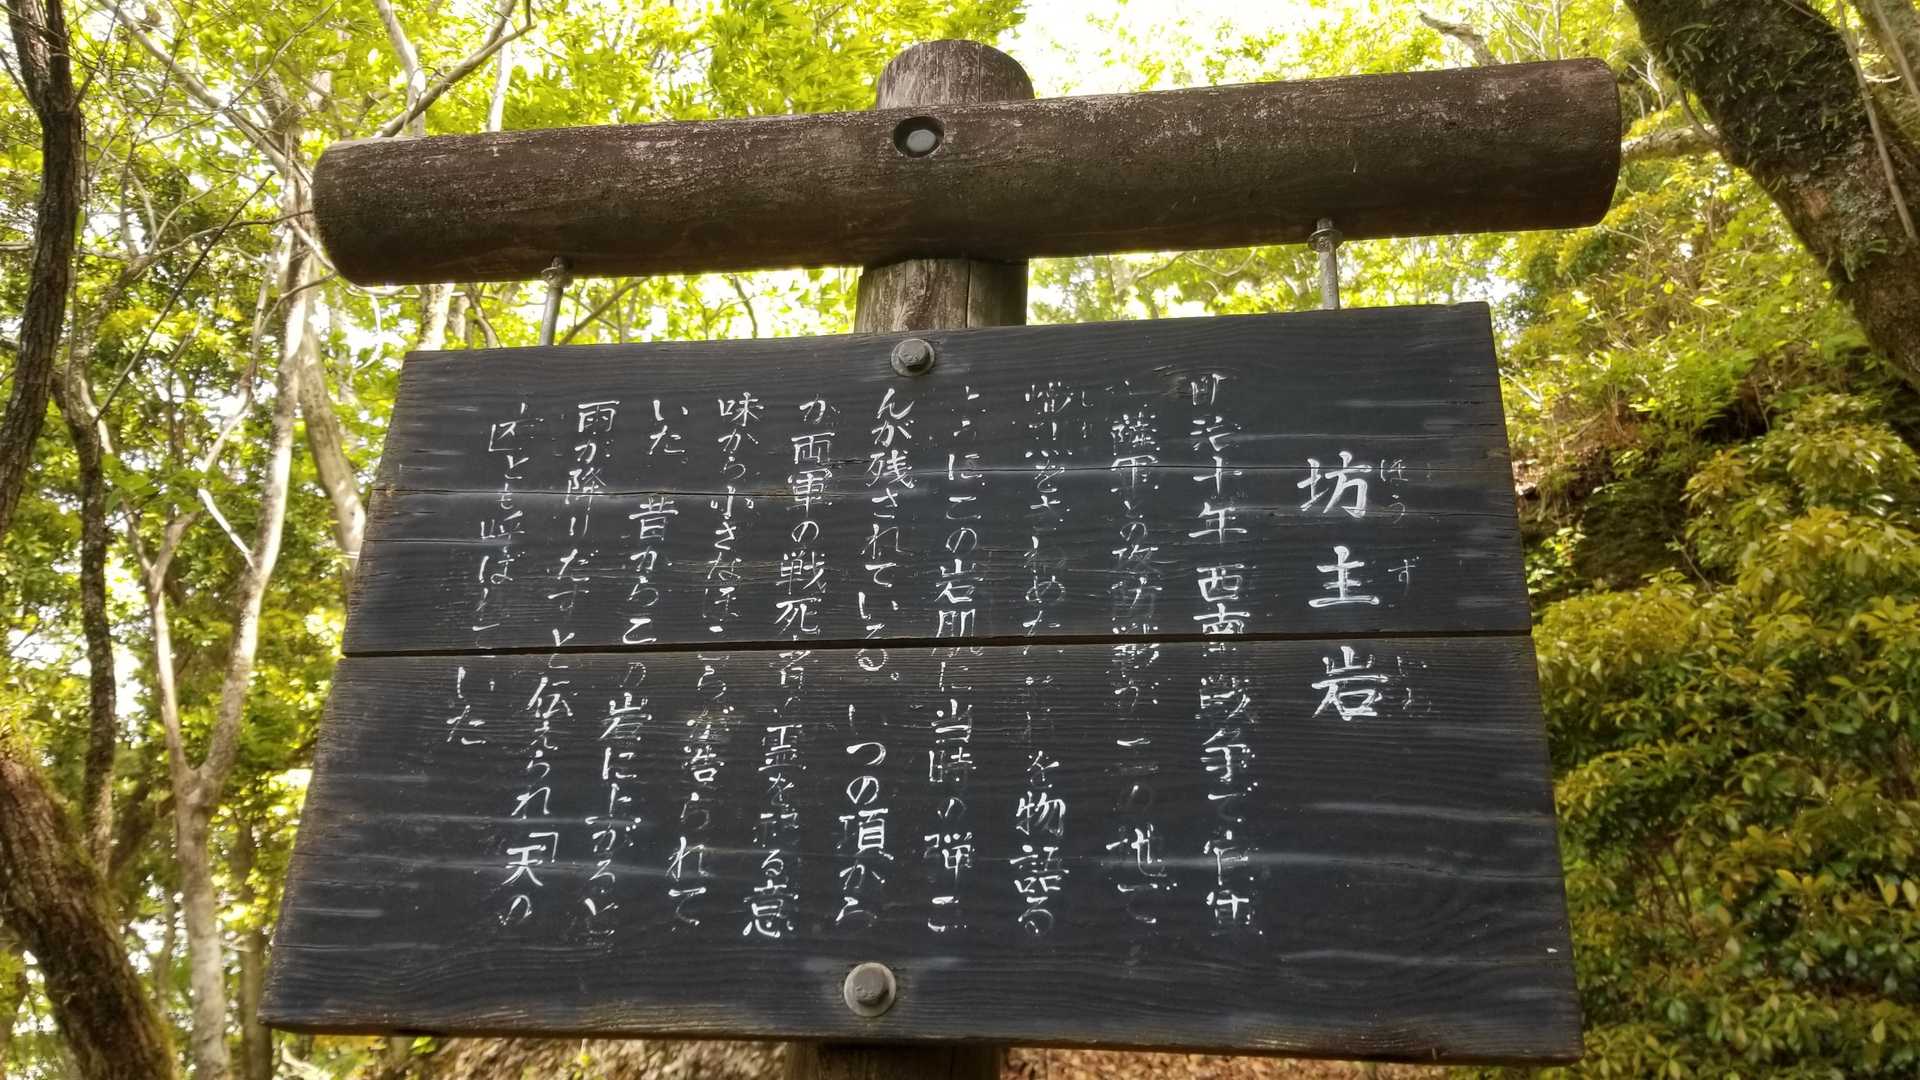 坊主岩
ぼうずいわ
明治十年西南戦争で官軍
と薩軍との攻防戦がこの地で
をきわめた それを物語る
ようにこの岩肌に当時の弾こ
んが残されている。いつの頃から
か両軍の戦死者の霊を祀る意
味から小さなほこらが造られて
いた 昔からこの岩に上がると
雨が降りだすと伝えられ「天の
岩」とも呼ばれていた